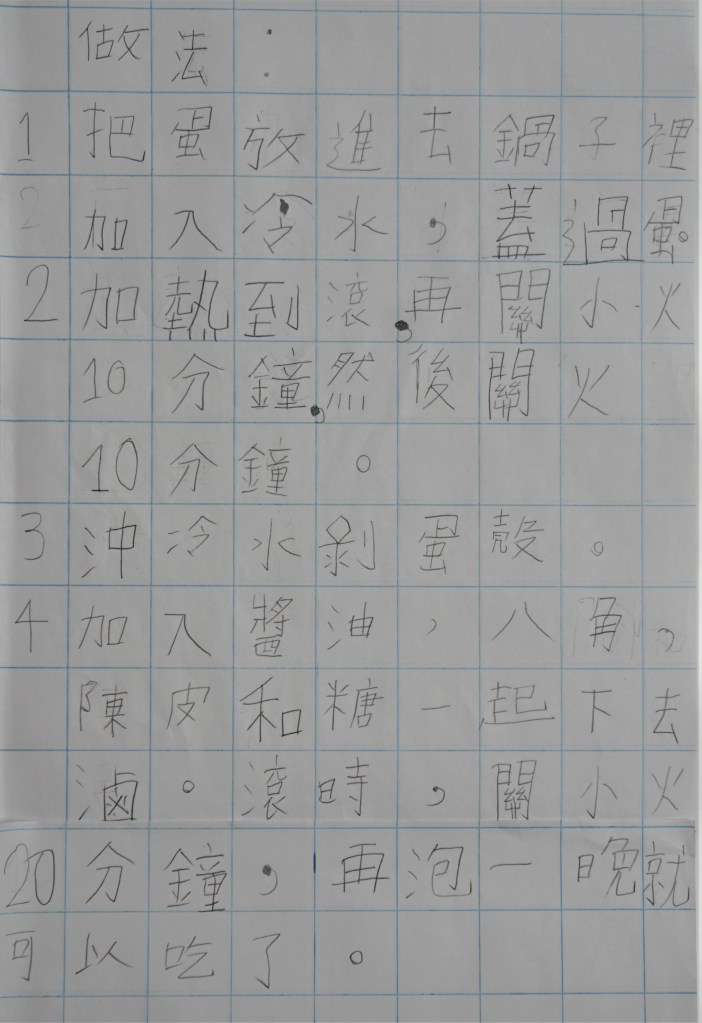 做法：
1 把蛋放進去鍋子裡
加入冷水，蓋過蛋。
2 加熱到滾，再關小火
10分鐘，然後關火
10分鐘。
3 沖冷水剝蛋殼。
4 加入醬油，八角，
陳皮和糖一起下去
滷。滾時，關小火
20分鐘，再泡一晚就
可以吃了。